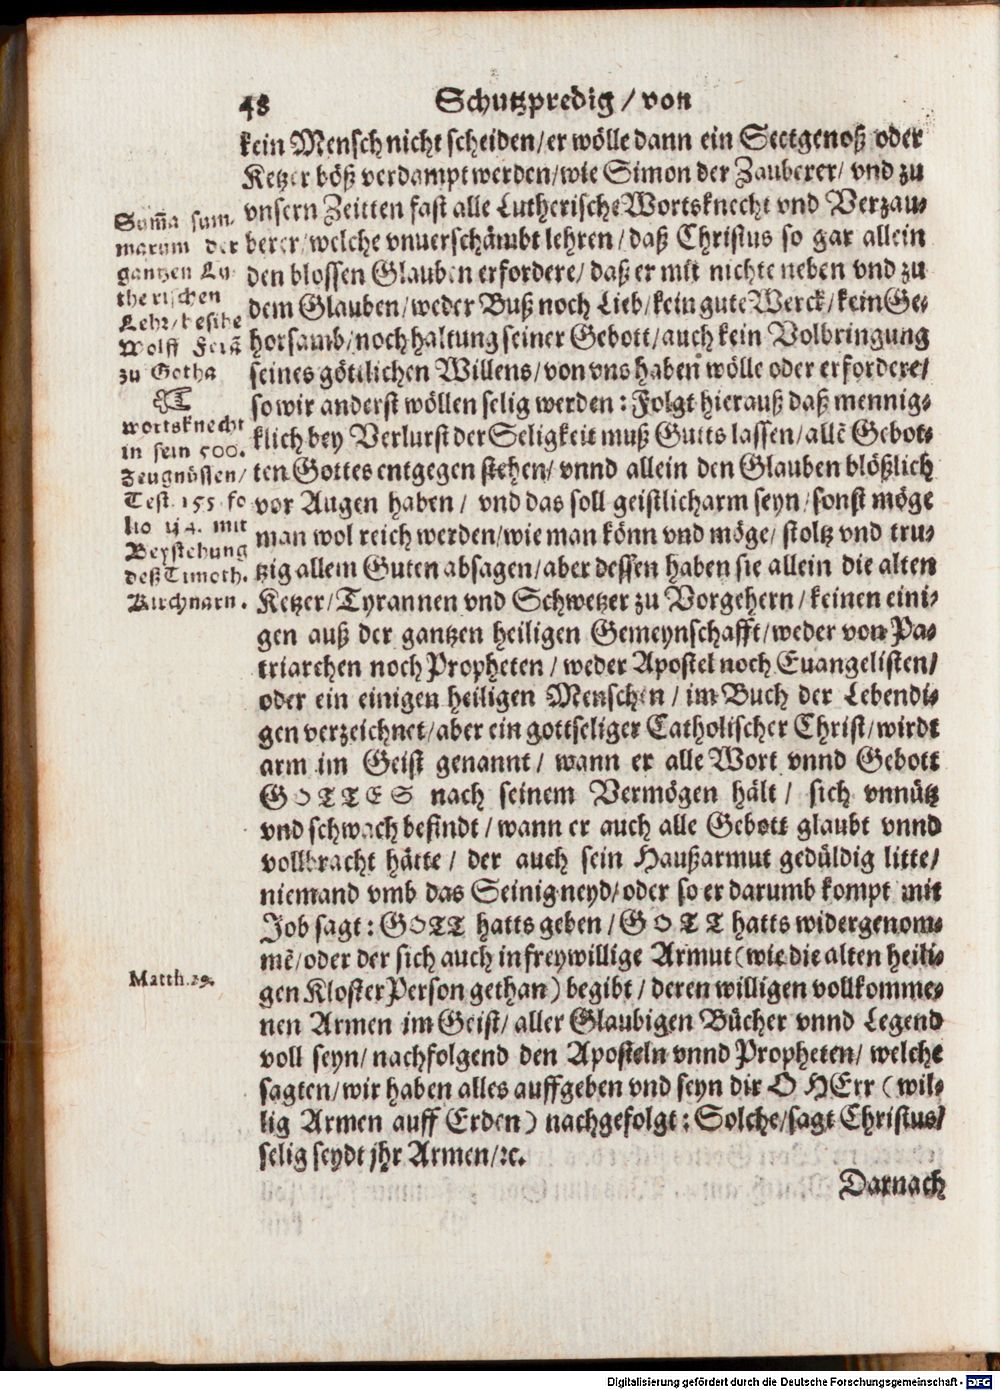 48
Schutzpredig / von
kein Mensch nicht scheiden/ er wölle dann ein Sectgenoß oder
Ketzer böß verdampt werden/ wie Simon der Zauberer/ vnd zu
vnsern Zeitten fast alle Lutherische Wortsknecht vnd Verzau-
berer/ welche vnuerschämbt lehren / daß Christus so gar allein
den blossen Glauben erfordere/ daß er mit nichte neben vnd zu
dem Glauben/ weder Buß noch Lieb/ kein gute Werck/ kein Ge-
horsamb/ noch haltung seiner Gebott/ auch kein Volbringung
seines göttlichen Willens/ von vns haben wölle oder erfordere/
so wir anderst wöllen selig werden: Folgt hierauß daß mennig-
klich bey Verlurst der Seligkeit muß Gutts lassen/ allē Gebot-
ten Gottes entgegen stehen/ vnnd allein den Glauben blößlich
vor Augen haben / vnd das soll geistlicharm seyn/ sonst möge
man wol reich werden/ wie man könn vnd möge/ stoltz vnd tru-
tzig allem Guten absagen/ aber dessen haben sie allein die alten
Ketzer/ Tyrannen vnd Schwetzer zu Vorgehern/ keinen eini-
gen auß der gantzen heiligen Gemeynschafft/ weder von Pa-
triarchen noch Propheten / weder Apostel noch Euangelisten/
oder ein einigen heiligen Menschen / im Buch der Lebendi-
gen verzeichnet/ aber ein gottseliger Catholischer Christ/ wirdt
arm im Geist genannt / wann er alle Wort vnnd Gebott
GOTTES nach seinem Vermögen hält / sich vnnütz
vnd schwach befindt / wann er auch alle Gebott glaubt vnnd
vollbracht hätte / der auch sein Haußarmut gedüldig litte/
niemand vmb das Seinig neyd/ oder so er darumb kompt mit
Job sagt: GOTT hatts geben / GOTT hatts widergenom-
mē/ oder der sich auch in freywillige Armut (wie die alten heili-
gen Kloster Person gethan) begibt / deren willigen vollkomme-
nen Armen im Geist/ aller Glaubigen Bücher vnnd Legend
voll seyn/ nachfolgend den Aposteln vnnd Propheten/ welche
sagten/ wir haben alles auffgeben vnd seyn dir O HErr (wil-
lig Armen auff Erden) nachgefolgt: Solche/ sagt Christus/
selig seydt jhr Armen/ ꝛc.
Darnach
Sum̄a sum-
marum der
gantzen Lu-
therischen
Lehr/ besihe
Wolff
zu Gotha
wortsknecht
in sein 500.
Zeugnüssen/
Test. 155. fo
lio 114. mit
Beystehung
deß Timoth.
Kirchnern.
Matth. 19.
Digitalisierung gefördert durch die Deutsche Forschungsgemeinschaft - DFG